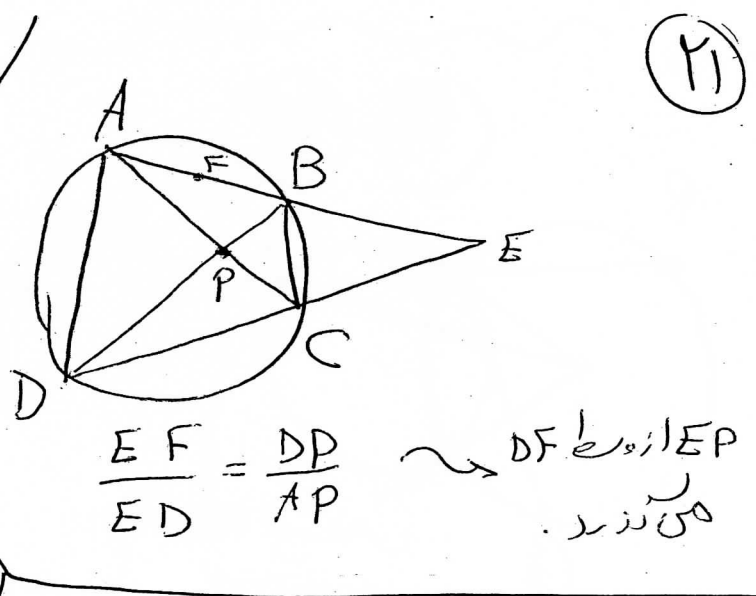 ۲۱
A
F
B
E
P
C
D
EF/ED = DP/AP ⇝ EP از وسط DF
می گذرد.